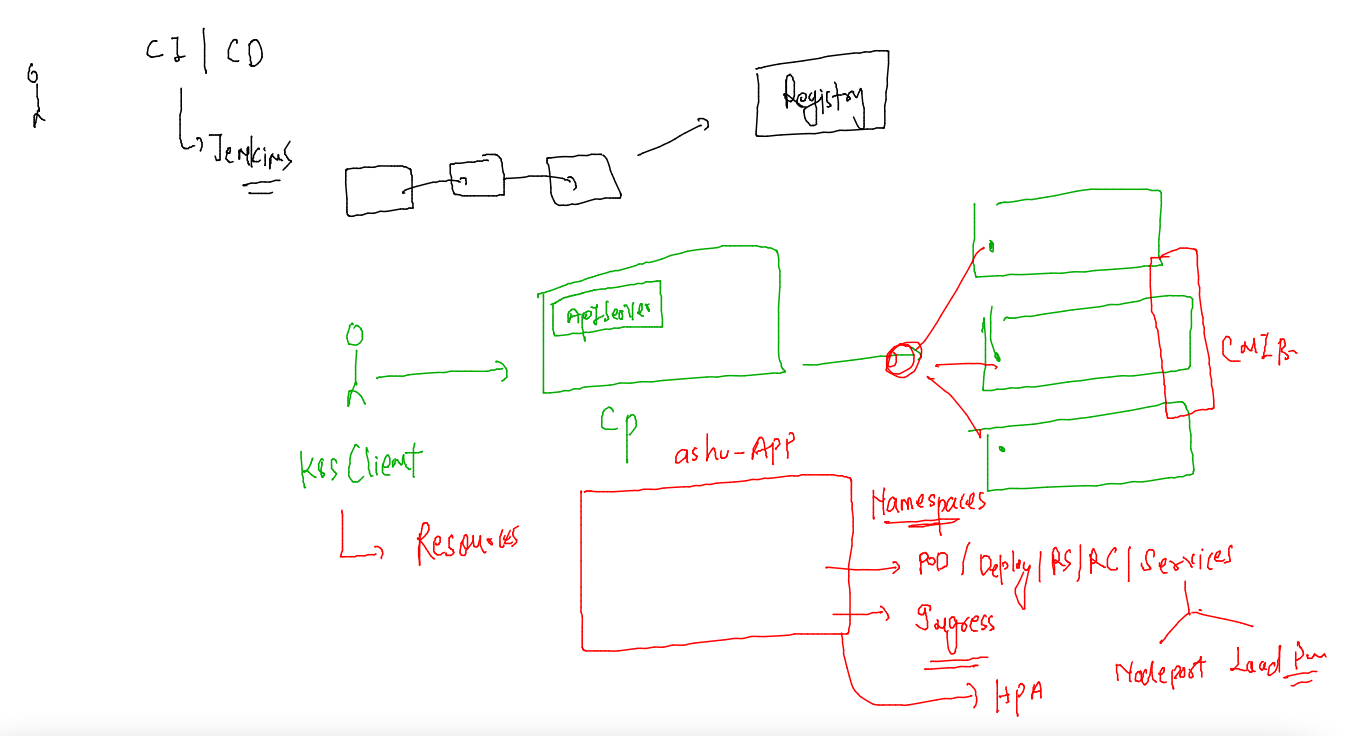 CI | CD
Jenkins
Registry
ApiServer
Cp
K8s Client
Resources
ashu-APP
Namespaces
POD / Deploy | RS | RC | Services
Ingress
Nodeport Load
HPA